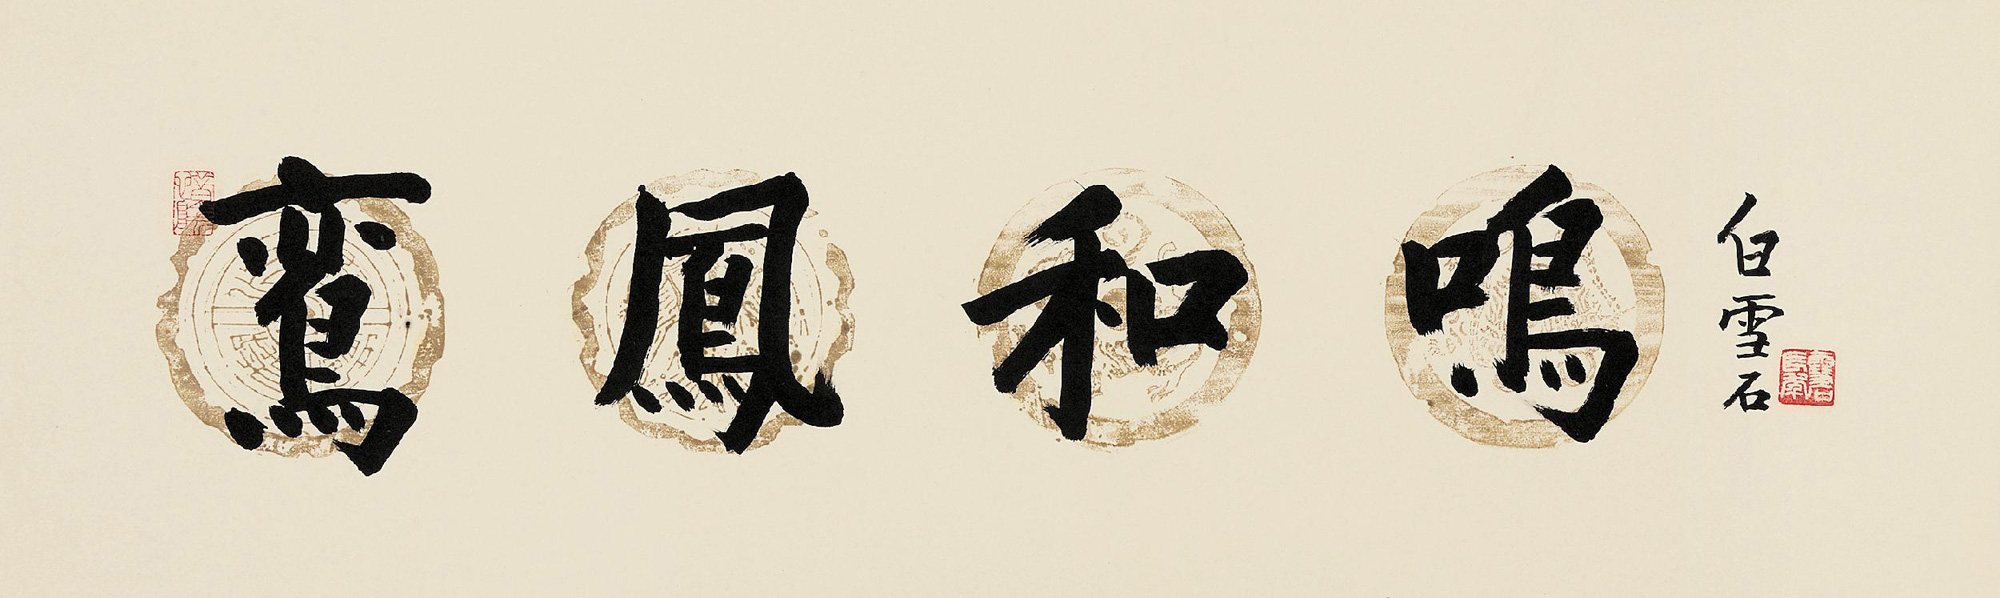 鸾鳳和鳴
白雪石